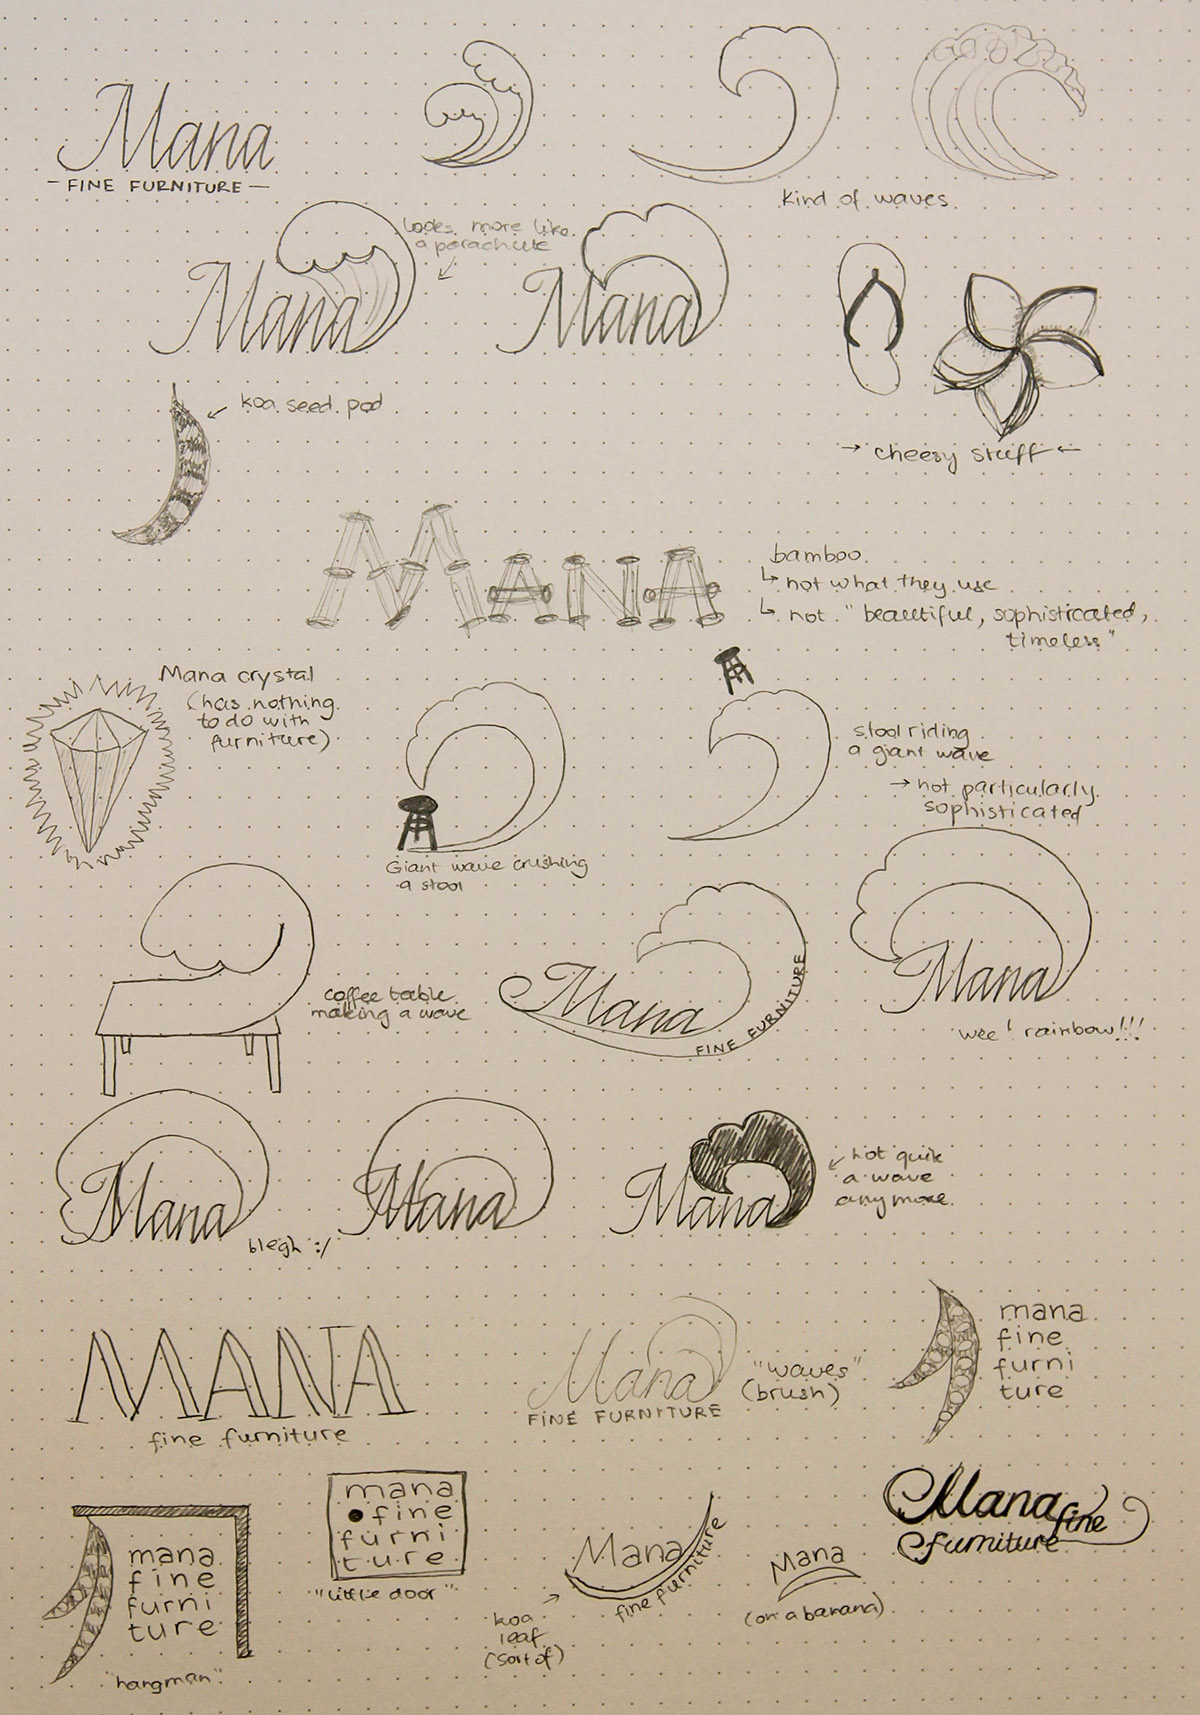 Mana
- FINE FURNITURE -
kind of waves
looks more like
a parachute
Mana
Mana
koa seed pod
cheesy stuff
MANA
bamboo
not what they use
not "beautiful, sophisticated,
timeless"
Mana crystal
(has nothing
to do with
furniture)
stool riding
a giant wave
→ not particularly
sophisticated
Giant wave crushing
a stool
coffee table
making a wave
Mana
FINE FURNITURE
Mana
wee! rainbow!!!
Mana
blegh :/
Mana
Mana
not quite
a wave
anymore
MANA
fine furniture
Mana
FINE FURNITURE
"waves"
(brush)
mana
fine
furni
ture
mana
fine
furni
ture
"hangman"
mana
fine
furni
ture
"little door"
Mana
fine furniture
koa
leaf
(sort of)
Mana
(or a banana)
Mana
fine
furniture